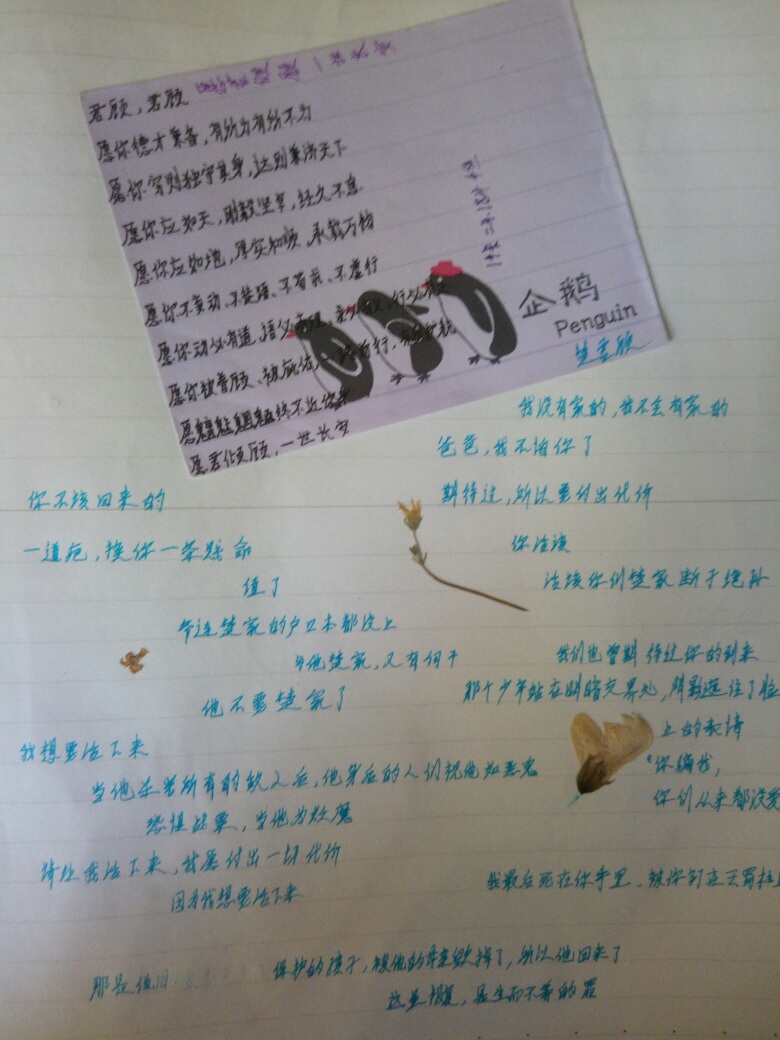 君顾，君顾
愿你德才兼备，有所为有所不为
愿你穷则独守其身，达则兼济天下
愿你应如天，刚毅坚卓，经久不息
愿你应如地，厚实和顺，承载万物
愿你不妄动、不徒语、不苟求、不虚行
愿你动必有道，语必
愿你被眷顾、被庇佑，
愿魑魅魍魉终不近你身
愿君倾顾，一世长安
企鹅
Penguin
楚君顾
我没有家的，我不会有家的
爸爸，我不怕你了
期待过，所以要付出代价
你活该
活该你们楚家断子绝孙
你不该回来的
一道疤，换你一条贱命
值了
爷连楚家的户口本都没上
与他楚家，又有何干
他不要楚家了
我们也曾期待过你的到来
那个少年站在明暗交界处，阴影遮住了脸
上的表情
“你骗我，
你们从来都没爱
我想要活下来
当他杀光所有的敌人后，他身后的人们视他如恶鬼
恐惧战栗，当他为妖魔
为让我活下来，甘愿付出一切代价
因为我想要活下来
我最后死在你手里，被你钉在
那是他
保护的孩子，被他的母亲毁掉了，所以他回来了
这是报复，是生而不养的罪